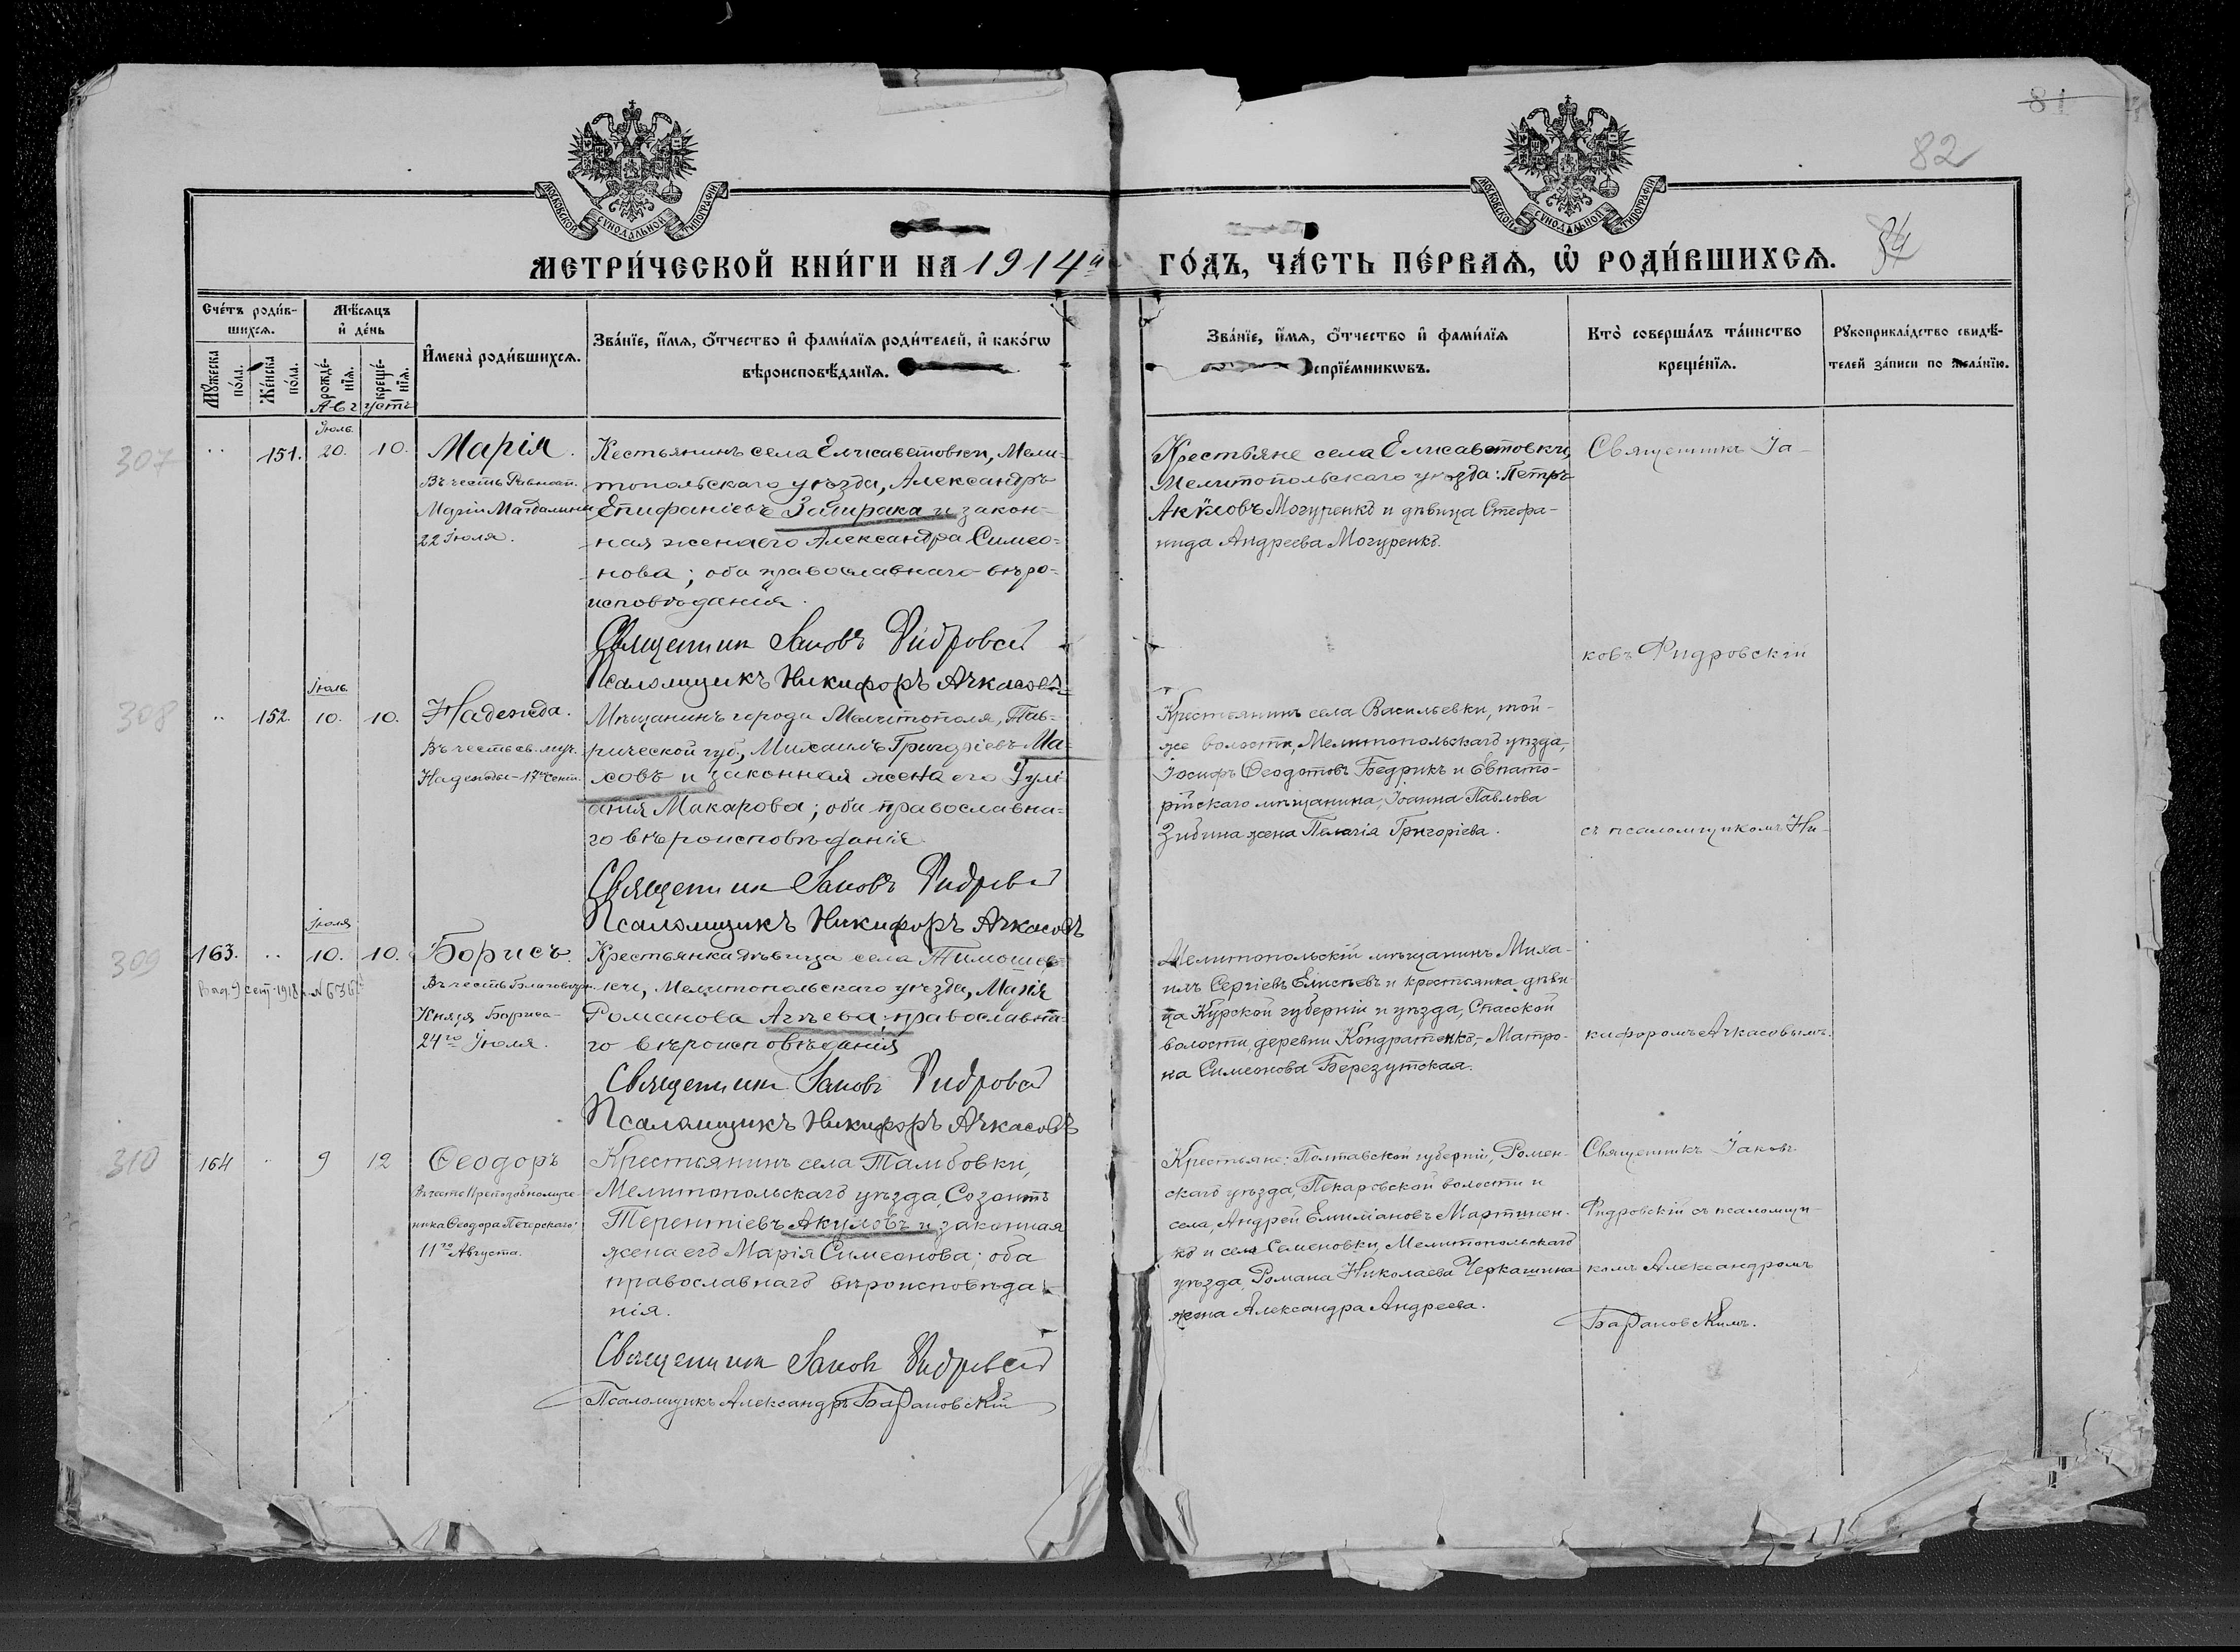 81
82
84
МОСКОВСКОЙ СѴНОДАЛЬНОЙ ТИПОГРАФІИ
МОСКОВСКОЙ СѴНОДАЛЬНОЙ ТИПОГРАФІИ
МЕТРИ́ЧЕСКОЙ КНИ́ГИ НА 1914й
ГО́ДЪ, ЧА́СТЬ ПЕ́РВАѦ, Ѽ РОДИ́ВШИХСѦ.
Сче́тъ роди́в-
шихсѧ.
Мꙋ́жеска по́ла.
Же́нска по́ла.
Мѣ́сѧцъ
и҆ де́нь
рожде́-
нїѧ.
креще́-
нїѧ.
Августъ
И҆мена̀ роди́вшихсѧ.
Зва́нїе, и҆́мѧ, ѻ҆́тчество и҆ фами́лїѧ роди́телей, и҆ како́гѡ
вѣроисповѣ́данїѧ.
Зва́нїе, и҆́мѧ, ѻ҆́тчество и҆ фами́лїѧ
воспрїе́мникѡвъ.
Кто̀ соверша́лъ та́инство
креще́нїѧ.
Рꙋкоприкла́дство свидѣ́-
телей за́писи по жела́нїю.
307
151.
Іюль.
20.
10.
Марія.
Въ честь Равноап.
Маріи Магдалины
22 Іюля.
Кестьянинъ села Елисаветовки, Мели-
топольскаго уѣзда, Александръ
Епифаніевъ Запирака и закон-
ная жена его Александра Симео-
нова; оба православнаго вѣро-
исповѣданія.
Священникъ Іаковъ Фидровскій
Псаломщикъ Никифоръ Ачкасовъ
Крестьяне села Елисаветовки,
Мелитопольскаго уѣзда: Петръ
Акѵловъ Могуренко и дѣвица Стефа-
нида Андреева Могуренко.
Священникъ Іа-
ковъ Фидровскій
308
152.
Іюль.
10.
10.
Надежда.
Въ честь св. муч.
Надежды - 17го Сент.
Мѣщанинъ города Мелитополя, Тав-
рической губ., Михаилъ Григоріевъ Ма-
ховъ и законная жена его Іулі-
анія Макарова; оба православна-
го вѣроисповѣданія.
Священникъ Іаковъ Фидровскій
Псаломщикъ Никифоръ Ачкасовъ
Крестьянинъ села Васильевки, той-
же волости, Мелитопольскаго уѣзда,
Іосифъ Ѳеодотовъ Бедрикъ и Евпато-
рійскаго мѣщанина, Іоанна Павлова
Зибина жена Пелагія Григоріева.
съ псаломщикомъ Ни-
309
163.
Іюля
10.
10.
Борисъ.
Въ честь Благовѣрн.
Князя Бориса
24го Іюля.
Выд. 9 сент. 1918 г. №
Крестьянка дѣвица села Тимошев-
ки, Мелитопольскаго уѣзда, Марія
Романова Агѣева, православна-
го вѣроисповѣданія
Священникъ Іаковъ Фидровскій
Псаломщикъ Никифоръ Ачкасовъ
Мелитопольскій мѣщанинъ Миха-
илъ Сергіевъ Елисѣевъ и крестьянка дѣви-
ца Курской губерніи и уѣзда, Спасской
волости, деревни Кондратенко, - Матро-
на Симеонова Березутская.
кифоромъ Ачкасовымъ.
310
164
9
12
Ѳеодоръ
Въ честь Преподобномуче-
ника Ѳеодора Печерскаго.
11го Августа.
Крестьянинъ села Тамбовки,
Мелитопольскаго уѣзда, Созонтъ
Терентіевъ Акуловъ и законная
жена его Марія Симеонова; оба
православнаго вѣроисповѣда-
нія.
Священникъ Іаковъ Фидровскій
Псаломщикъ Александръ Барановскій
Крестьяне: Полтавской губерніи, Ромен-
скаго уѣзда, Пекаровской волости и
села, Андрей Емиліановъ Мартинен-
ко и села Семеновки, Мелитопольскаго
уѣзда, Романа Николаева Черкашина
жена Александра Андреева.
Священникъ Іаковъ
Фидровскій съ псаломщи-
комъ Александромъ
Барановскимъ.